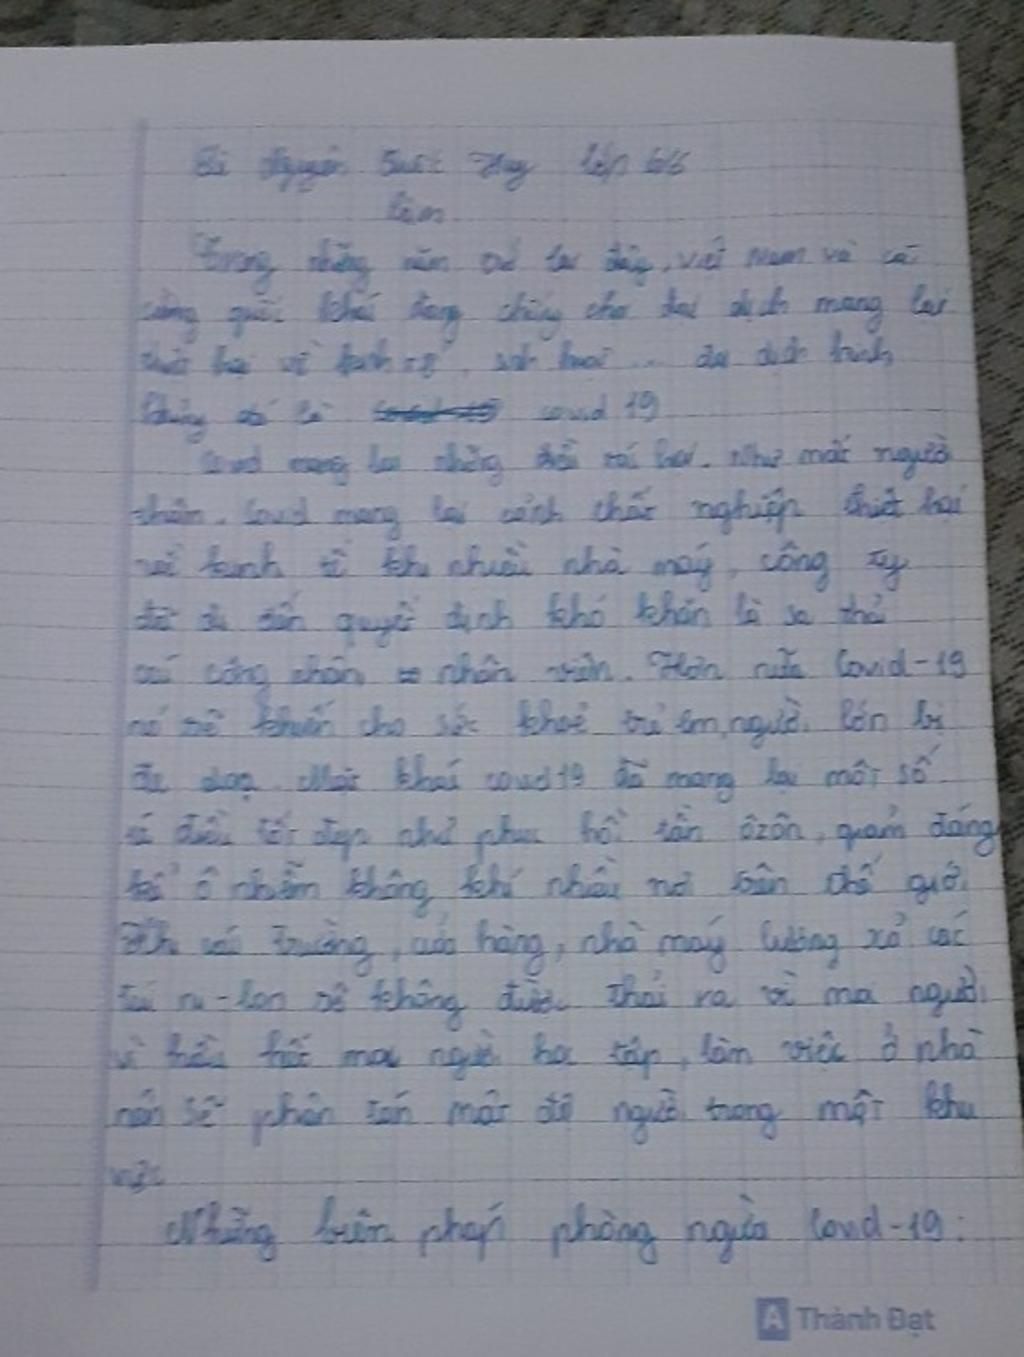 lớp 6/6
làm
Trong những năm trở lại đây, việt nam và cá
quốc khác đang chịu đại dịch mang lại
hại về kinh tế, đại dịch kinh
khủng đó là covid 19
Covid mang lại những điều tác hại. Như mất người
thân. Covid mang lại cảnh thất nghiệp thiệt hại
về kinh tế khi nhiều nhà máy, công ty
đã đi đến quyết định khó khăn là sa thải
các công nhân, nhân viên. Hơn nữa Covid-19
nó sẽ khiến cho sức khoẻ trẻ em, người lớn bị
đe dọa. Mặt khác covid 19 đã mang lại một số
điều tốt đẹp như phục hồi tần ôzôn, giảm đáng
kể ô nhiễm không khí nhiều nơi trên thế giới.
trường, cửa hàng, nhà máy lượng xả các
túi ni-lon sẽ không được thải ra vì mọi người
vì hầu hết mọi người học tập, làm việc ở nhà
nên sẽ phân tán mật độ người trong một khu
vực
Những biện pháp phòng ngừa Covid-19:
Thành Đạt